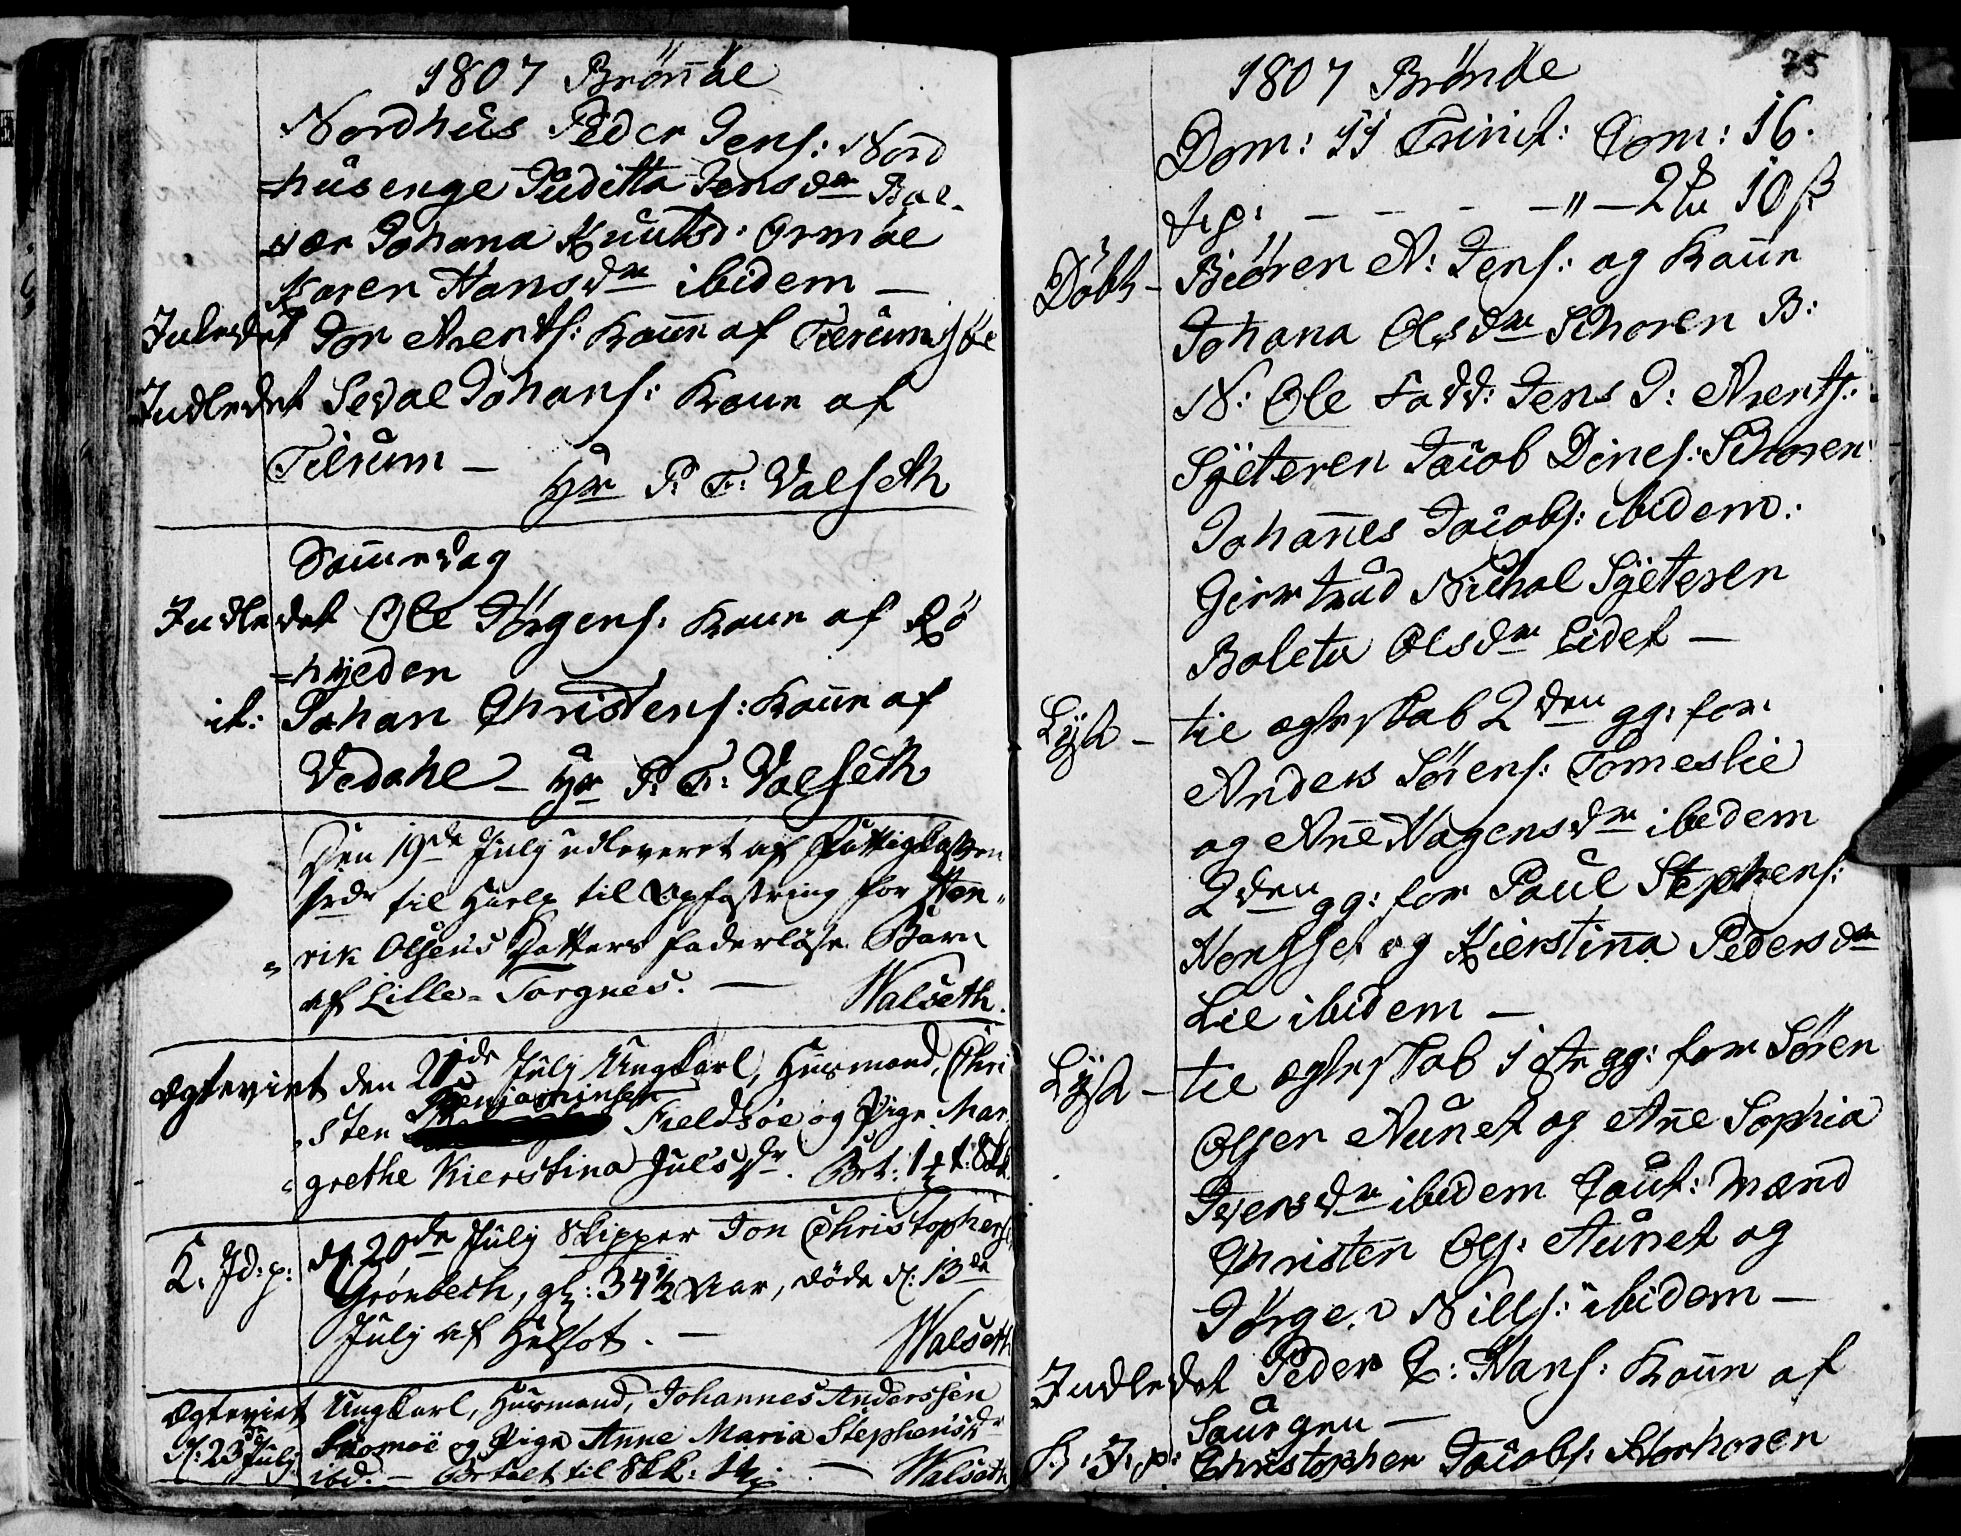 1807 Brönöe
Nordhus Peder Jens: Nord
=husenge Juditta Jensdr Bol-
=vær Johana Knutsd: Ormöe
Karen Hansdr ibidem —
Inledet Jon Arents: Kone af Tilrumsöe
Indledet Seval Johans: Kone af
Tilrum — Hr P: T: Valseth
Samedag
Indledet Ole Jörgens: Kone af Rö
=hyeden
it: Johan Christens: Kone af
Vedahl — Hr P: T: Valseth
Den 19de July udleveret af Fattigkassen
til Hielp til Opfostring for Hen-
=rik Olsens Datters faderløse Barn
af Lille-Torgnes. — Walseth.
Ægteviet den 21de July Ungkarl, Huusmand, Chri
=sten Benjaminsen Fieldsöe og Pige Mar
=grethe Kierstina Julsdr.
K: Jd: p: d: 20de July Skipper Jon Christophers:
Grönbech, gl: 34½ Aar, døde d: 13de
July af . — Walseth
Ægteviet Ungkarl, Huusmand, Johannes Anderssen
d: 23de July og Pige Anne Maria Stephensdr
ibd: — Betalt til Skk: — Walseth
75
1807 Brönöe
Dom: 11 Trinit: Com: 16.
— — — — " — 2 10 ß
Döbt — Biören A: Jens: og Kone
Johana Olsdr Schoren B:
N: Ole Fadd: Jens J: Arents:
Syeteren Jacob Dines: Schoren
Johannes Jacobs: ibidem:
Giertrud Nichol Syeteren
Boleta Olsdr Eidet —
Lyst — til ægteskab 2den gg: for
Anders Sörens: Tomeslie
og Ane Hagensdr ibidem
2den gg: for Paul Stephens:
Horsset og Kierstina Pedersdr
Lie ibidem —
Lyst — til ægteskab 1ste gg: for Sören
Olsen Aunet og Ane Sophia
Iversdr ibidem Caut: Mænd
Christen Ols: Aunet og
Jörgen Nills: ibidem —
Indledet Peder C: Hans: Kone af
Saugen —
B: J: p: Christopher Jacobs: Storhoren